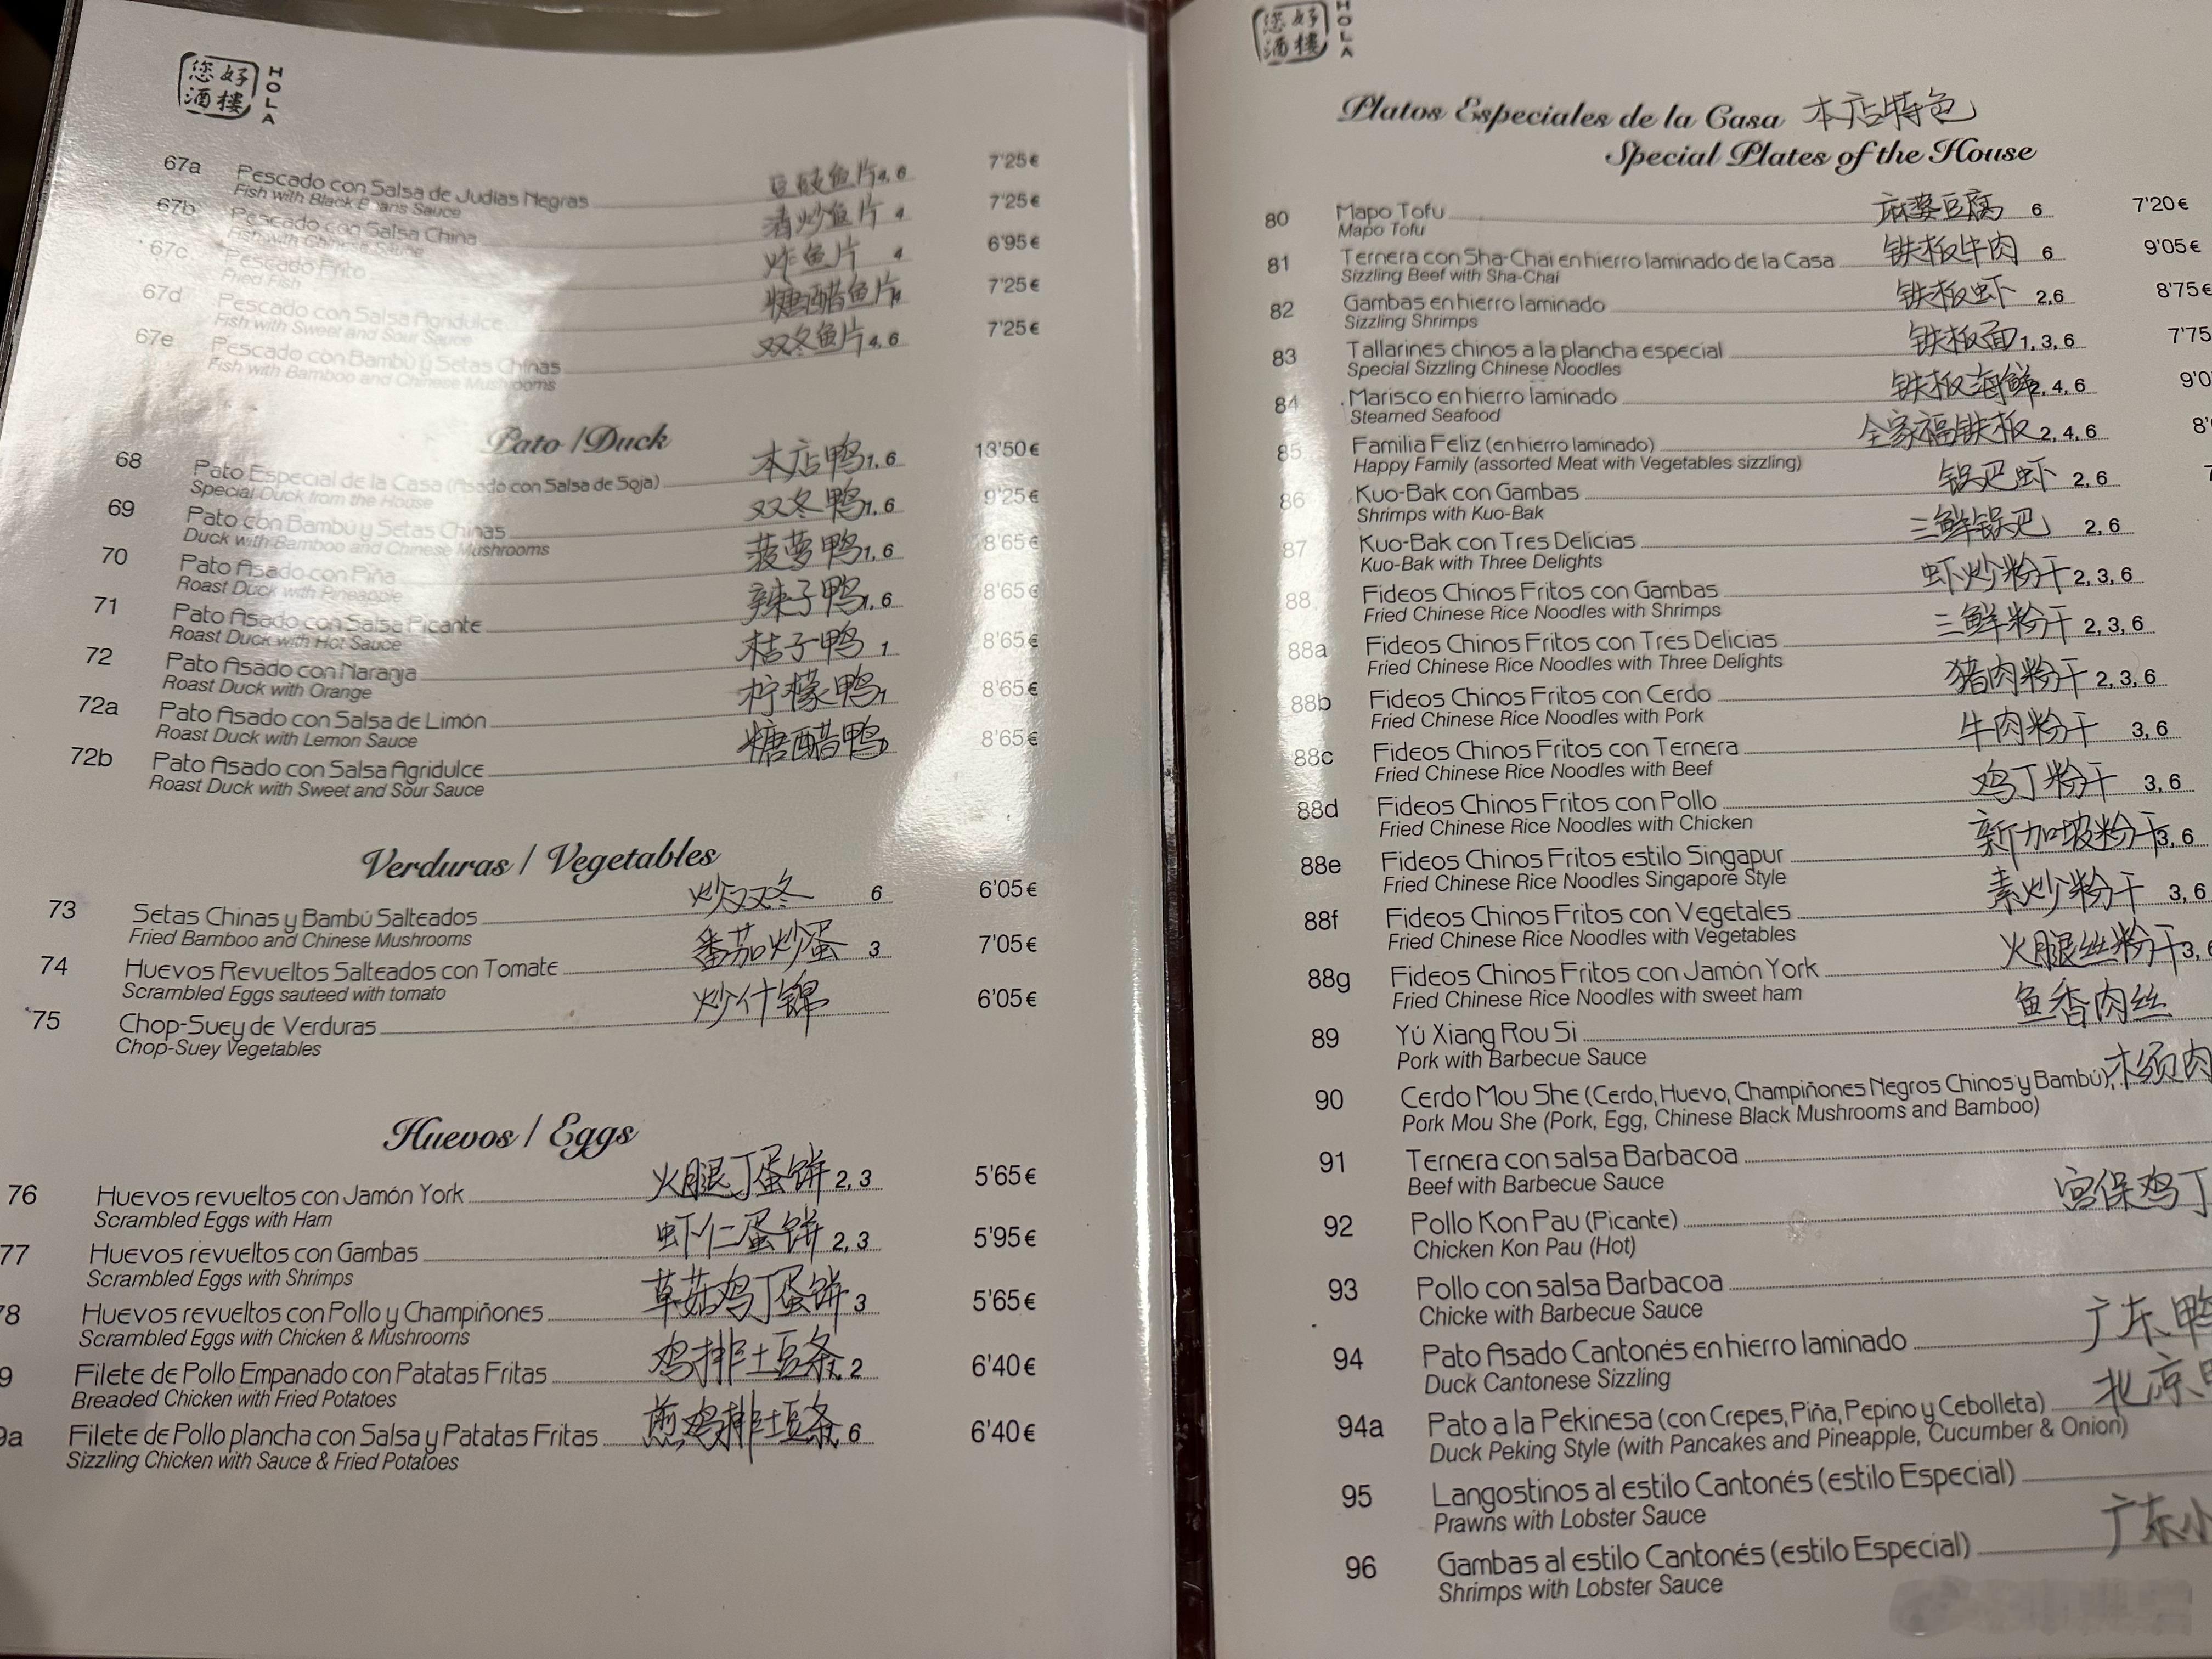 您好
酒樓
HOLA
67a Pescado con Salsa de Judías Negras 豆豉鱼片 4, 6 7'25€
Fish with Black Beans Sauce
67b Pescado con Salsa China 清炒鱼片 4 7'25€
Fish with Chinese Sauce
67c Pescado Frito 炸鱼片 4 6'95€
Fried Fish
67d Pescado con Salsa Agridulce 糖醋鱼片 7'25€
Fish with Sweet and Sour Sauce
67e Pescado con Bambú y Setas Chinas 双冬鱼片 4, 6 7'25€
Fish with Bamboo and Chinese Mushrooms
Pato / Duck
68 Pato Especial de la Casa (Asado con Salsa de Soja) 本店鸭 1, 6 13'50€
Special Duck from the House
69 Pato con Bambú y Setas Chinas 双冬鸭 1, 6 9'25€
Duck with Bamboo and Chinese Mushrooms
70 Pato Asado con Piña 菠萝鸭 1, 6 8'65€
Roast Duck with Pineapple
71 Pato Asado con Salsa Picante 辣子鸭 1, 6 8'65€
Roast Duck with Hot Sauce
72 Pato Asado con Naranja 桔子鸭 1 8'65€
Roast Duck with Orange
72a Pato Asado con Salsa de Limón 柠檬鸭 1 8'65€
Roast Duck with Lemon Sauce
72b Pato Asado con Salsa Agridulce 糖醋鸭 8'65€
Roast Duck with Sweet and Sour Sauce
Verduras / Vegetables
73 Setas Chinas y Bambú Salteados 炒双冬 6 6'05€
Fried Bamboo and Chinese Mushrooms
74 Huevos Revueltos Salteados con Tomate 番茄炒蛋 3 7'05€
Scrambled Eggs sauteed with tomato
75 Chop-Suey de Verduras 炒什锦 6'05€
Chop-Suey Vegetables
Huevos / Eggs
76 Huevos revueltos con Jamón York 火腿丁蛋饼 2, 3 5'65€
Scrambled Eggs with Ham
77 Huevos revueltos con Gambas 虾仁蛋饼 2, 3 5'95€
Scrambled Eggs with Shrimps
78 Huevos revueltos con Pollo y Champiñones 草菇鸡丁蛋饼 3 5'65€
Scrambled Eggs with Chicken & Mushrooms
9 Filete de Pollo Empanado con Patatas Fritas 鸡排土豆条 2 6'40€
Breaded Chicken with Fried Potatoes
9a Filete de Pollo plancha con Salsa y Patatas Fritas 煎鸡排土豆条 6 6'40€
Sizzling Chicken with Sauce & Fried Potatoes
您好
酒樓
HOLA
Platos Especiales de la Casa 本店特色
Special Plates of the House
80 Mapo Tofu 麻婆豆腐 6 7'20€
Mapo Tofu
81 Ternera con Sha-Chai en hierro laminado de la Casa 铁板牛肉 6 9'05€
Sizzling Beef with Sha-Chai
82 Gambas en hierro laminado 铁板虾 2,6 8'75€
Sizzling Shrimps
83 Tallarines chinos a la plancha especial 铁板面 1, 3, 6 7'75
Special Sizzling Chinese Noodles
84 Marisco en hierro laminado 铁板海鲜 2, 4, 6 9'0
Steamed Seafood
85 Familia Feliz (en hierro laminado) 全家福铁板 2, 4, 6 8'
Happy Family (assorted Meat with Vegetables sizzling)
86 Kuo-Bak con Gambas 锅巴虾 2, 6
Shrimps with Kuo-Bak
87 Kuo-Bak con Tres Delicias 三鲜锅巴 2, 6
Kuo-Bak with Three Delights
88 Fideos Chinos Fritos con Gambas 虾炒粉干 2, 3, 6
Fried Chinese Rice Noodles with Shrimps
88a Fideos Chinos Fritos con Tres Delicias 三鲜粉干 2, 3, 6
Fried Chinese Rice Noodles with Three Delights
88b Fideos Chinos Fritos con Cerdo 猪肉粉干 2, 3, 6
Fried Chinese Rice Noodles with Pork
88c Fideos Chinos Fritos con Ternera 牛肉粉干 3, 6
Fried Chinese Rice Noodles with Beef
88d Fideos Chinos Fritos con Pollo 鸡丁粉干 3, 6
Fried Chinese Rice Noodles with Chicken
88e Fideos Chinos Fritos estilo Singapur 新加坡粉干 3, 6
Fried Chinese Rice Noodles Singapore Style
88f Fideos Chinos Fritos con Vegetales 素炒粉干 3, 6
Fried Chinese Rice Noodles with Vegetables
88g Fideos Chinos Fritos con Jamón York 火腿丝粉干 3, 6
Fried Chinese Rice Noodles with sweet ham
89 Yú Xiang Rou Si 鱼香肉丝
Pork with Barbecue Sauce
90 Cerdo Mou She (Cerdo, Huevo, Champiñones Negros Chinos y Bambú) 木须肉
Pork Mou She (Pork, Egg, Chinese Black Mushrooms and Bamboo)
91 Ternera con salsa Barbacoa
Beef with Barbecue Sauce
92 Pollo Kon Pau (Picante) 宫保鸡丁
Chicken Kon Pau (Hot)
93 Pollo con salsa Barbacoa
Chicke with Barbecue Sauce
94 Pato Asado Cantonés en hierro laminado 广东鸭
Duck Cantonese Sizzling
94a Pato a la Pekinesa (con Crepes, Piña, Pepino y Cebolleta) 北京
Duck Peking Style (with Pancakes and Pineapple, Cucumber & Onion)
95 Langostinos al estilo Cantonés (estilo Especial)
Prawns with Lobster Sauce
96 Gambas al estilo Cantonés (estilo Especial) 广东小
Shrimps with Lobster Sauce